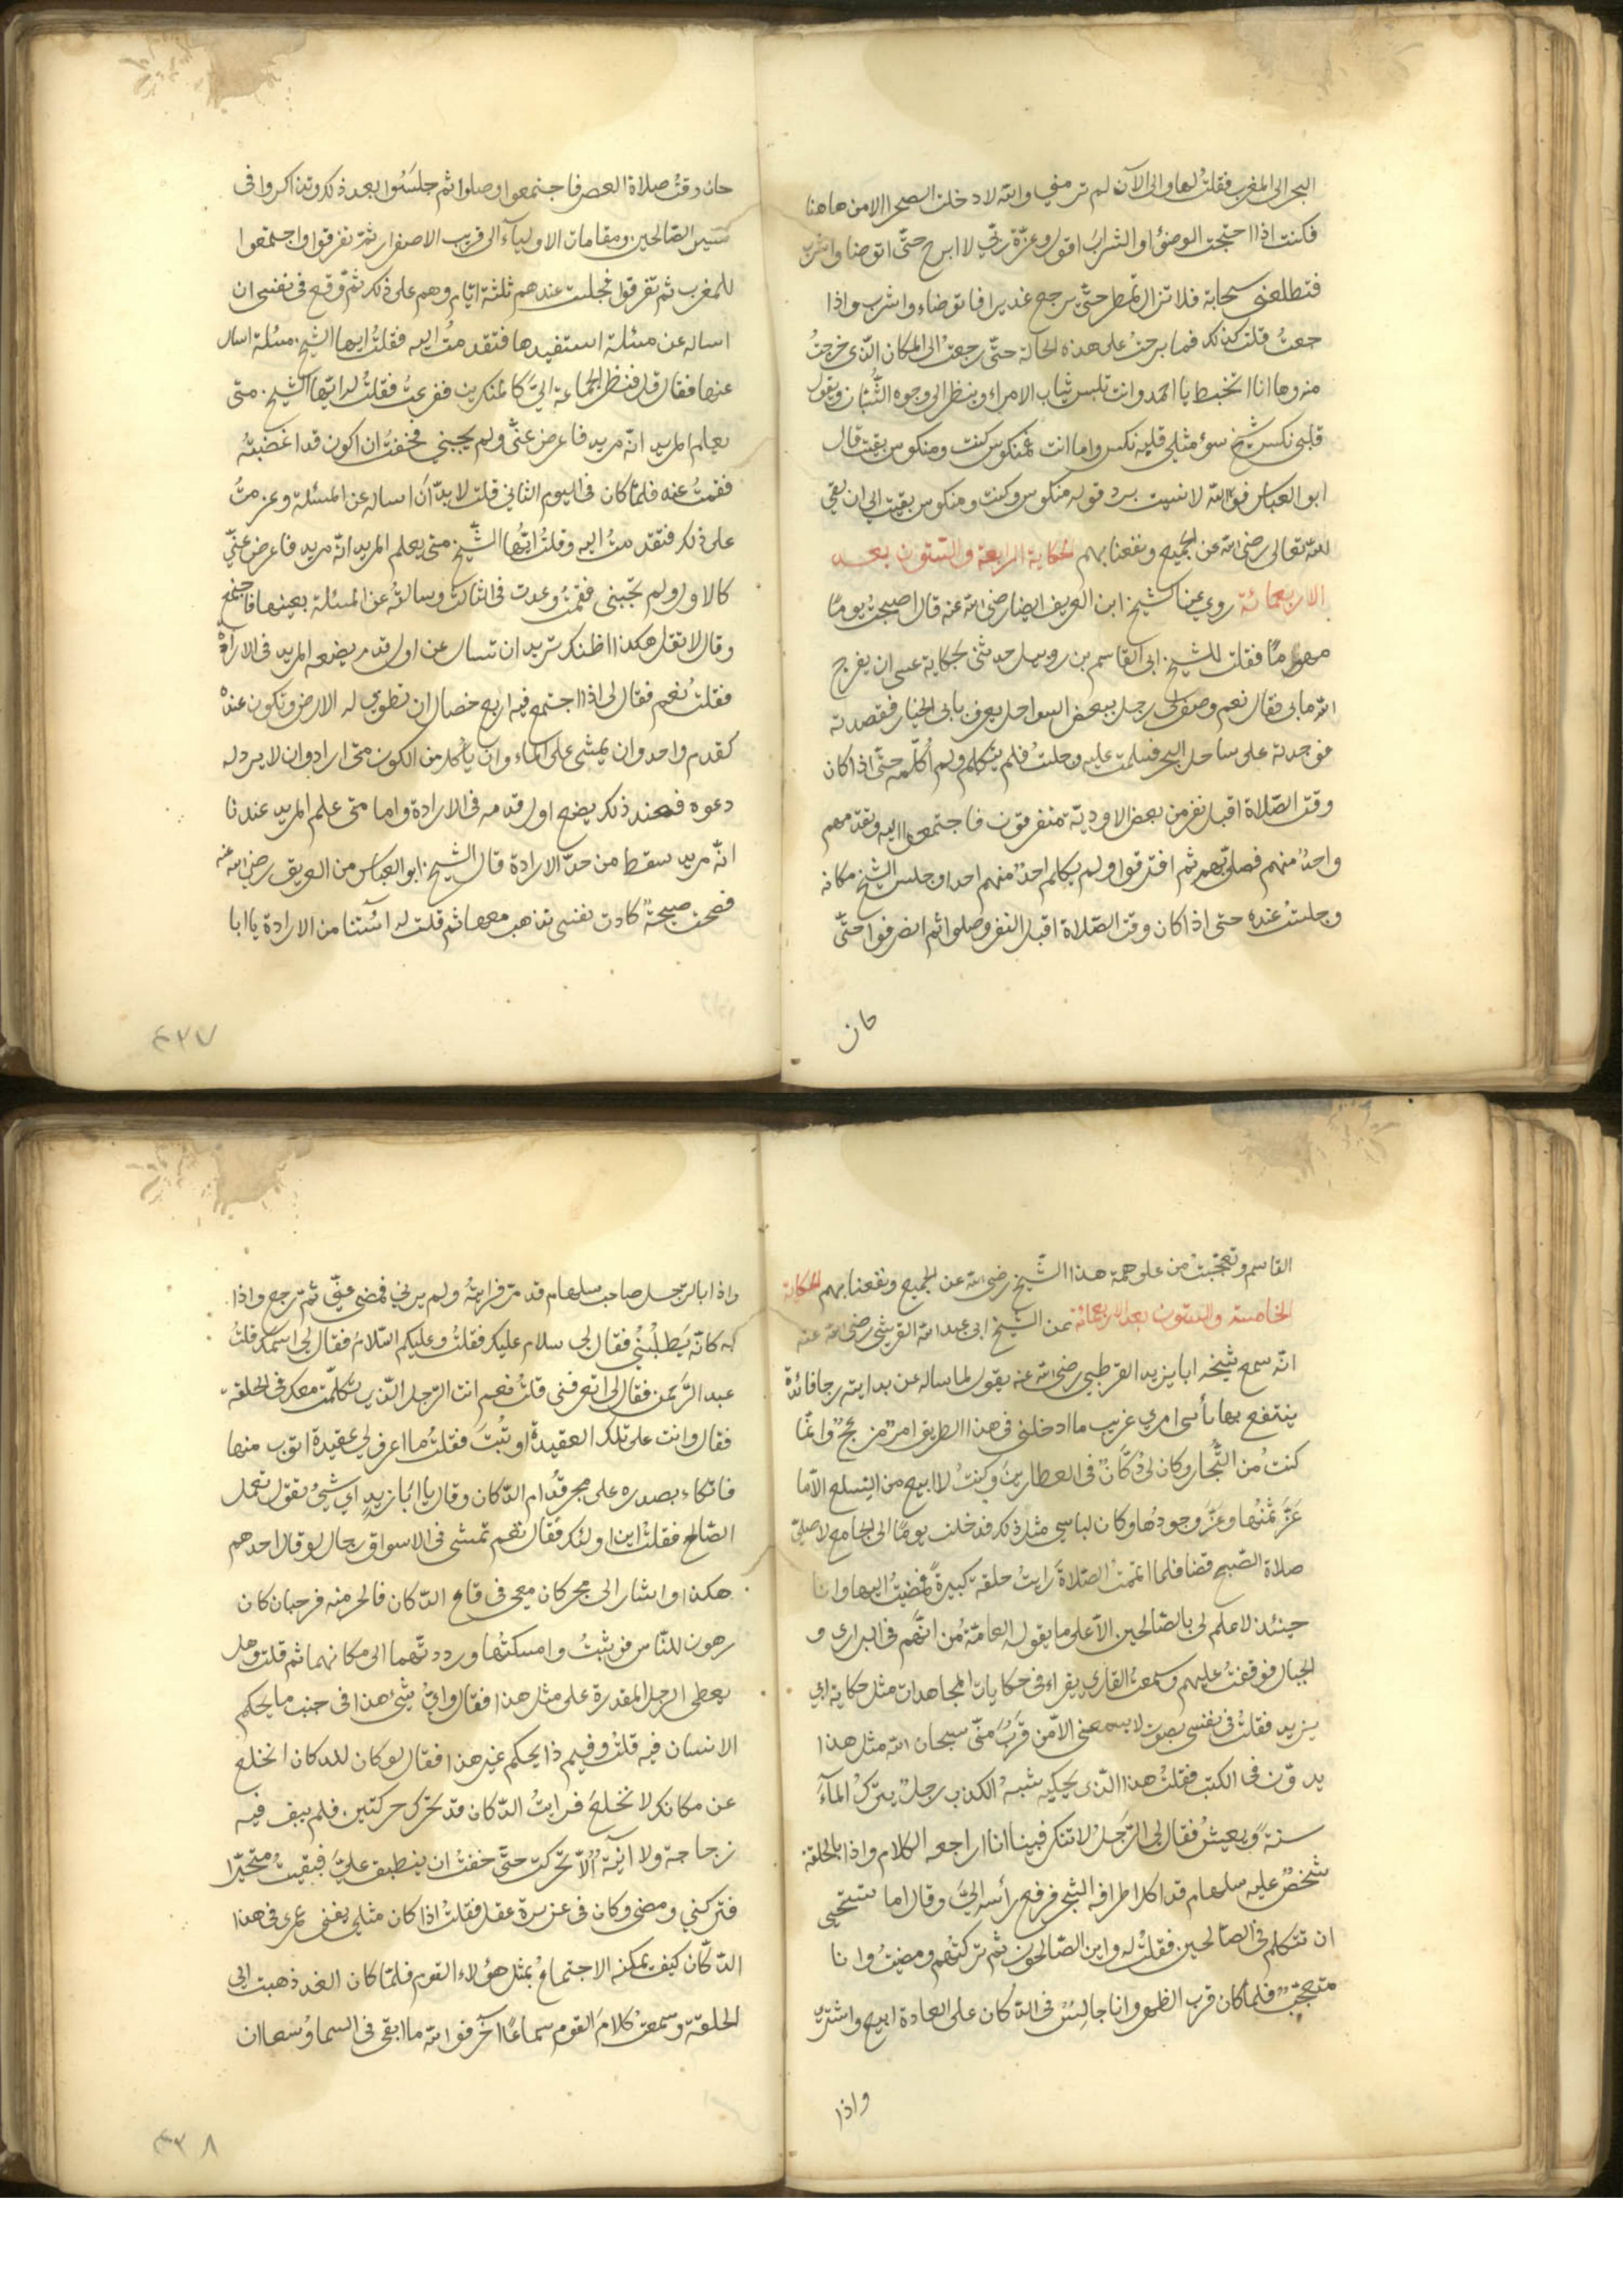 البحر الى المغرب فقلت لها والى الآن لم ترمني والله لا دخلت الصحرا الا من هاهنا
فكنت اذا احتجت الوضؤ او الشراب اقول وعزة ربي لا ابرح حتى اتوضا واشرب
فتطلعني سحابة فلا تزال تمطر حتى يرجع غديرا فاتوضاء واشرب واذا
جعت قلت كذلك فما برحت على هذه الحالة حتى رجعت الى المكان الذى خرجت
منه وها انا اتخبط يا احمد وانت تلبس ثياب الامراء وينظر الى وجوه الشبان ويقول
قلبى نكس شيخ سوء مثلي قلبه نكس واما انت فمنكوس كنت ومنكوس بقيت قال
ابو العباس فوالله لا نسيت برد قوله منكوس وكنت ومنكوس بقيت الى ان بقى
لله تعالى رضى الله عن الجميع ونفعنا بهم الحكاية الرابعة والستون بعد
الاربعمائة روي عن الشيخ ابن العريف ايضا رضى الله عنه قال اصبحت يوما
مهموما فقلت للشيخ ابى القاسم بن روبيل حدثنى بحكاية عسى ان يفرج
الله ما بى فقال نعم وصف لى رجل ببعض السواحل يعرف بابى الخيار فقصدته
فوجدته على ساحل البحر فسلمت عليه وجلست فلم يتكلم ولم اكلمه حتى اذا كان
وقت الصلاة اقبل نفر من بعض الاودية متفرقون فاجتمعوا اليه وتقدمهم
واحد منهم فصلى بهم ثم افترقوا ولم يكلم احد منهم احدا وجلس الشيخ مكانه
وجلست عنده حتى اذا كان وقت الصلاة اقبل النفر وصلوا ثم انصرفوا حتى
حان
حان وقت صلاة العصر فاجتمعوا وصلوا ثم جلسوا بعد ذلك وتذاكروا فى
سير الصالحين ومقامات الاولياء الى قريب الاصفرار ثم تفرقوا واجتمعوا
للمغرب ثم تفرقوا فجلست عندهم ثلثة ايام وهم على ذلك ثم وقع فى نفسى ان
اساله عن مسئلة استفيدها فتقدمت اليه فقلت ايها الشيخ مسئلة اسال
عنها فقال قل فنظر الجماعة الي كالمنكرين ففزعت فقلت له ايها الشيخ متى
يعلم المريد انه مريد فاعرض عنى ولم يجبني فخفت ان اكون قد اغضبته
فقمت عنه فلما كان فى اليوم الثانى قلت لا بد ان اساله عن المسئلة وعزمت
على ذلك فتقدمت اليه وقلت ايها الشيخ متى يعلم المريد انه مريد فاعرض عني
كالاول ولم يجبنى فقمت وعدت فى الثالث وسالته عن المسئلة بعينها فاجتمع
وقال لا تقل هكذا اظنك تريد ان تسال عن اول قدم يضعه المريد فى الارادة
فقلت نعم فقال لى اذا اجتمع فيه اربع خصال ان تطوي له الارض وتكون عنده
كقدم واحد وان يمشى على الماء وان يأكل من الكون متى اراد وان لا يرد له
دعوه فعند ذلك يضع اول قدمه فى الارادة واما متى علم المريد عندنا
انه مريد سقط من حد الارادة قال الشيخ ابو العباس من العريف رضى الله عنه
فصحت صيحة كادت نفسى تذهب معها ثم قلت له آيستنا من الارادة يا ابا
٤٣٧
القاسم وتعجبت من علو همة هذا الشيخ رضى الله عن الجميع ونفعنا بهم الحكاية
الخامسة والستون بعد الاربعمائة عن الشيخ ابى عبد الله القريشى رضى الله عنه
انه سمع شيخه ابا يزيد القرطبي رضى الله عنه يقول لما ساله عن بدايته رجا فائدة
ينتفع بها يأسى امري غريب ما ادخلنى فى هذا الطريق امر من بحج وانما
كنت من التجار وكان لى دكان فى العطارين وكنت لا ابيع من السلع الا ما
عز ثمنها وعز وجودها وكان لباسي مثل ذلك فدخلت يوما الى الجامع لاصلي
صلاة الصبح قضا فلما اتممت الصلاة رايت حلقة كبيرة فمضيت اليها وانا
حينئذ لا علم لى بالصالحين الا على ما يقوله العامة من انهم فى البرارى و
الجبال فوقفت عليهم وسمعت القارى يقراء فى حكايات المجاهدات مثل حكاية ابي
يزيد فقلت فى نفسى بصوت لا يسمعنى الا من قرب منى سبحان الله مثل هذا
يدون فى الكتب فقلت هذا الذى يحكيه يشبه الكذب رجل يترك المآء
سنة ويعيش فقال لى الرجل لا تنكر فبينا انا اراجعه الكلام واذا بالحلقة
شخص عليه سلهام قد اكل اطرافه الشيح فرفع رأسه الى وقال اما تستحيى
ان تتكلم فى الصالحين فقلت له واين الصالحون ثم تركتهم ومضيت وانا
متعجب فلما كان قرب الظهر وانا جالس فى الدكان على العادة ابيع واشترى
واذا
واذا بالرجل صاحب سلهام قد مر فرايته ولم يرني فمضى عنى ثم رجع واذا
به كانه يطلبني فقال لى سلام عليك فقلت وعليكم السلام فقال لى اسمك قلت
عبد الرحمن فقال لى اتعرفنى قلت نعم انت الرجل الذى تكلمت معك فى الحلقة
فقال وانت على تلك العقيدة او تبت فقلت ما اعرف لي عقيدة اتوب منها
فاتكاء بصدره على حجر قدام الدكان وقال يا ابا زيد اي شئ يقول لعمل
الصالح فقلت اين اولئك فقال نعم تمشى فى الاسواق رجال لو قال احدهم
هكذا واشار الى حجر كان معى فى قاع الدكان فالحر منه فرحبان كان
رهون للناس فوثبت وامسكتها ورددتهما الى مكانهما ثم قلت وهل
يعطى الرجل المقدرة على مثل هذا فقال واي شئ هذا فى جنب ما يحكم
الانسان فيه قلت وفيم ذا يحكم غير هذا فقال لو كان للدكان انخلع
عن مكانك لانخلع فرايت الدكان قد تحرك حركتين فلم يبق فيه
زجاجة ولا انية الا تحركت حتى خفت ان ينطبق علي فبقيت متحيرا
فتركني ومضى وكان فى عز سرة عقل فقلت اذا كان مثلى يفنى عمرى فى هذا
الدكان كيف يمكنه الاجتماع بمثل هؤلاء القوم فلما كان الغد ذهبت الى
الحلقة وسمعت كلام القوم سماعا آخر فوالله ما ابقى فى السما وسعا ان
٤٣٨